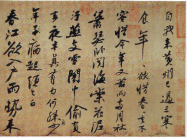 自我來黃州已過三寒
食年年欲惜春春去不
容惜今年又苦雨兩月秋
蕭瑟臥聞海棠花泥
汙燕支雪闇中偷負
去夜半真有力何殊少
年子病起頭已白
春江欲入戶雨勢來